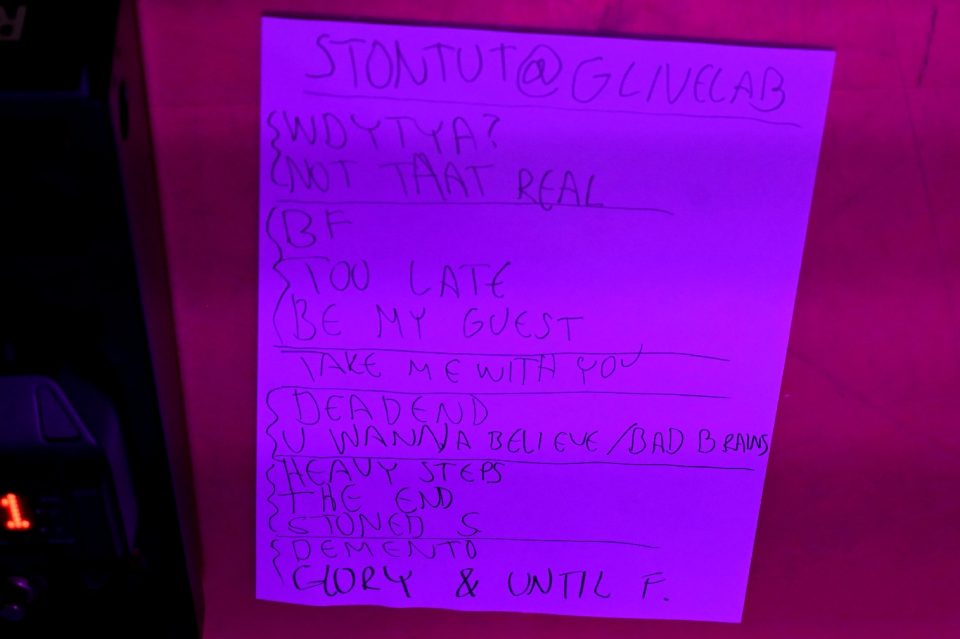 STONTUT@GLIVELAB
WDYTYA?
NOT THAT REAL
BF
TOO LATE
BE MY GUEST
TAKE ME WITH YOU
DEADEND
U WANNA BELIEVE/BAD BRAINS
HEAVY STEPS
THE END
STONED S
DEMENTO
GLORY & UNTIL F.
R
1